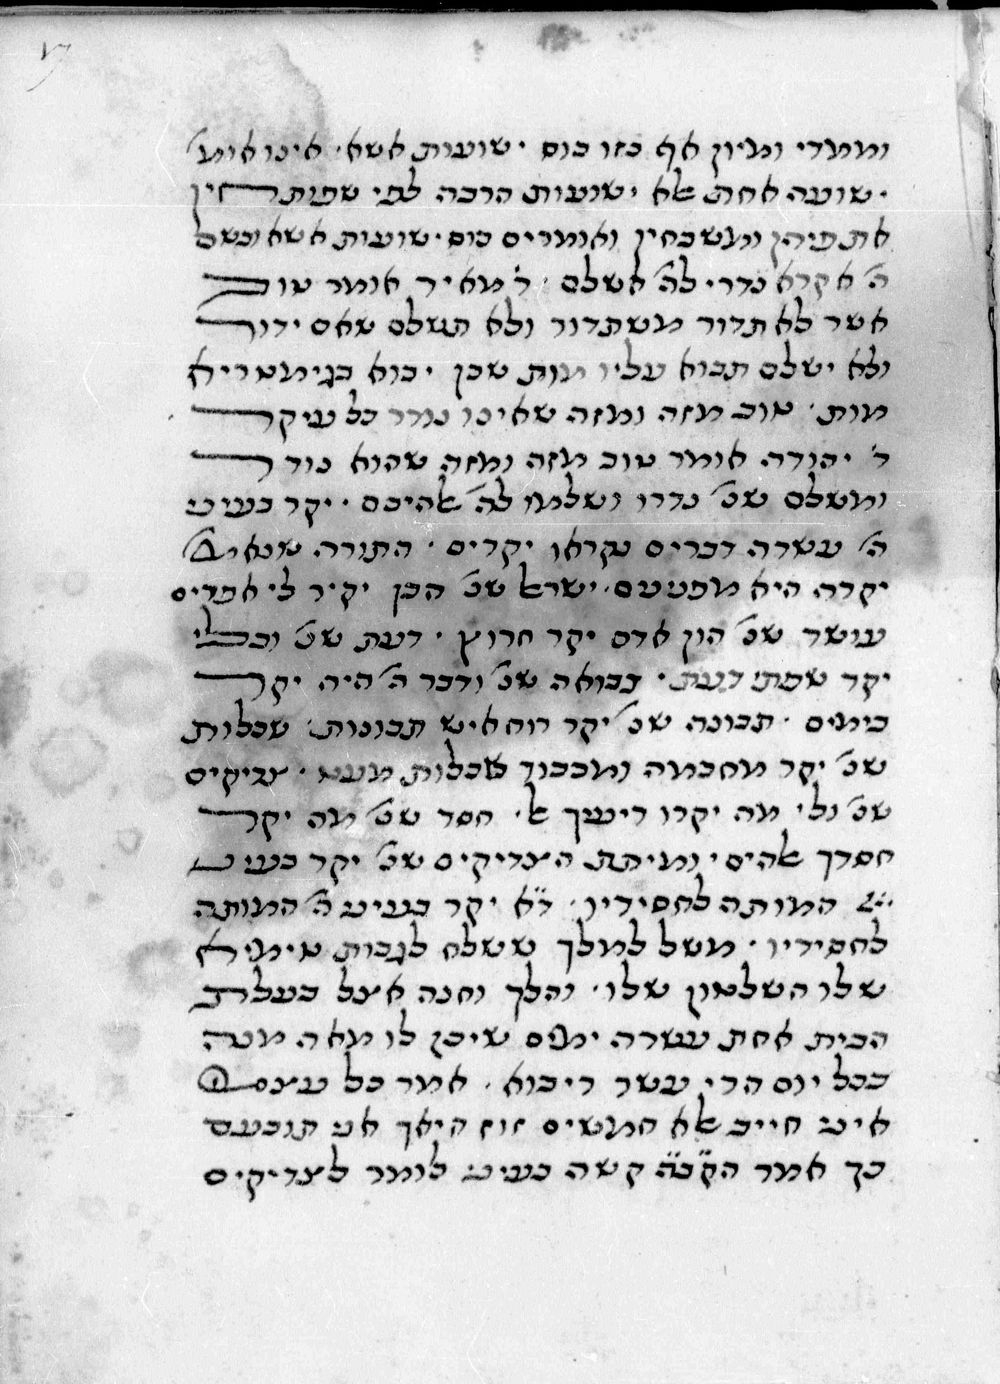 ומתרי ומיון אף כזו כוס ׳ ישועות אשא׳ אינו אומ׳
׳ ישועה אחת אלא ישועות הרבה לפי שפותחין
את פיהן ומשבחין ואומרים כוס ׳ ישועות אשא ובשם
ה׳ אקרא נדרי לה׳ אשלם ׳ ר׳ מאיר אומר טוב
אשר לא תדור משתדור ולא תשלם שאם ידור
ולא ישלם תבוא עליו מות שכן ׳ יבוא בגימטריא
מות ׳ טוב מזה ומזה שאינו נודר כל עיקר
ר׳ יהודה אומר טוב מזה ומזה שהוא נודר
ומשלם שנ׳ נדרו ושלמו לה׳ אלהיכם ׳ יקר בעיני
ה׳ עשרה דברים נקראו יקרים ׳ התורה שנאמ׳
יקרה היא מפנינים ׳ ישראל שנ׳ הבן יקיר לי אפרים
עושר שנ׳ הון אדם יקר חרוץ ׳ דעת שנ׳ וכלי
יקר שפתי דעת ׳ נבואה שנ׳ ודבר ה׳ היה יקר
בימים ׳ תבונה שנ׳ יקר רוח איש תבונות ׳ סכלות
שנ׳ יקר מחכמה ומכבוד סכלות מעט ׳ צדיקים
שנ׳ ולי מה יקרו ריעיך אל ׳ חסד שנ׳ מה יקר
חסדך אלהים ׳ ומיתת הצדיקים שנ׳ יקר בעיני
ה׳ המותה לחסידיו ׳ ד״א יקר בעיני ה׳ המותה
לחסידיו ׳ משל למלך ששלח לגבות טימיא
שלו השלטון שלו ׳ והלך וחנה אצל בעלת
הבית אחת עשרה ימים שיכן לו מאה מנה
בכל יום הרי עשר ריבוא ׳ אמר כל עצמ׳
איני חייב אלא חמשים זוז היאך אני תובעם
כך אמר הקב״ה קשה בעיני לומר לצדיקים